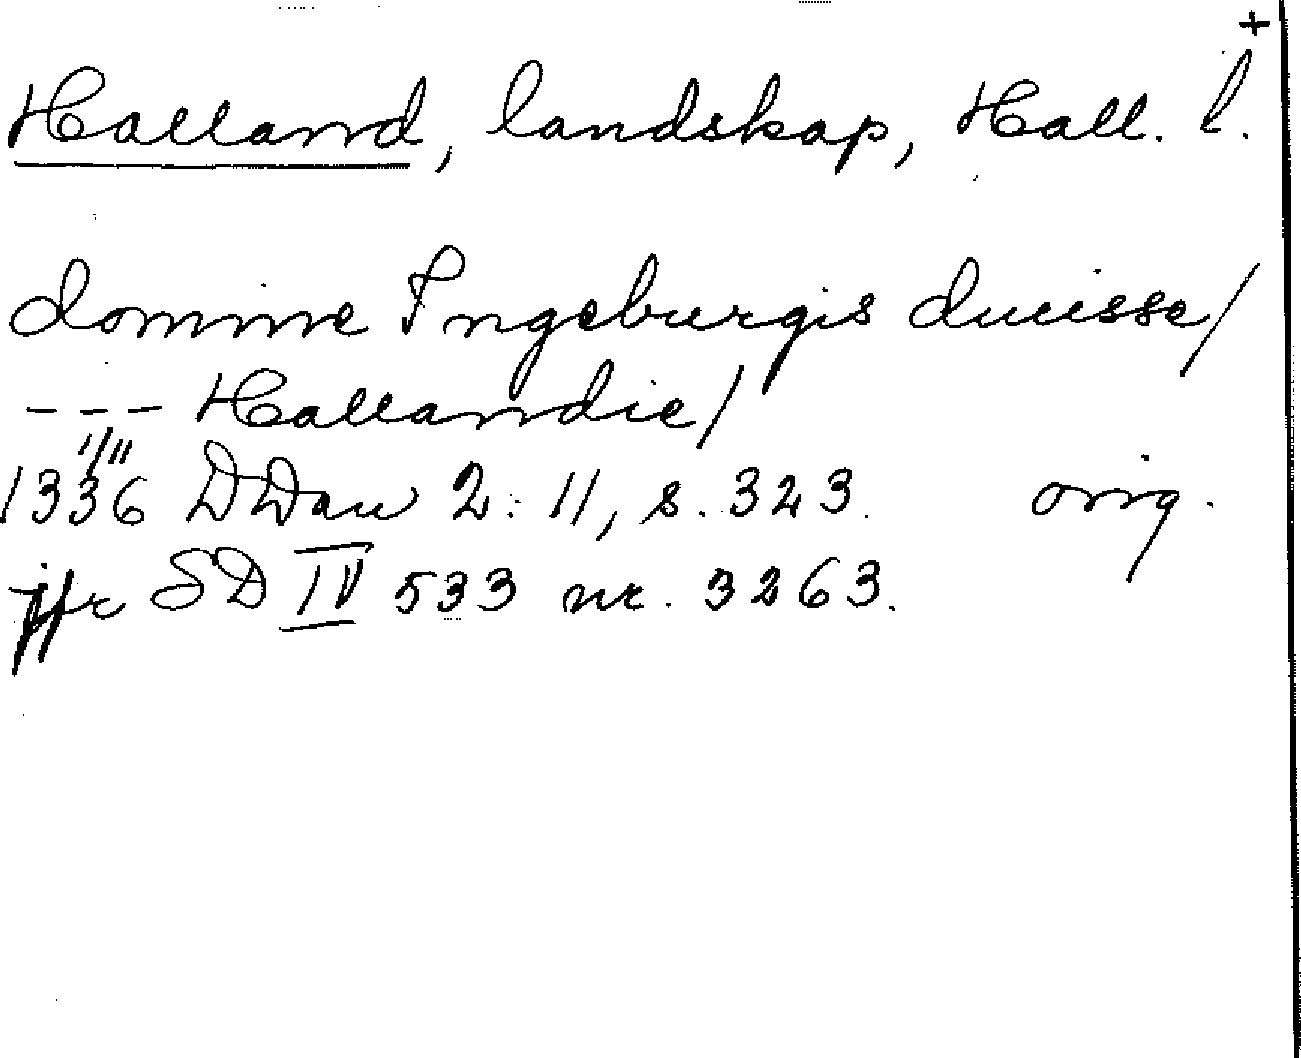 +
Halland, landskap, Hall. l.
domine Ingeburgis ducisse/
--- Hallandie/
1/11
1336 DDan 2: 11, s. 323. orig.
jfr SD IV 533 nr. 3263.